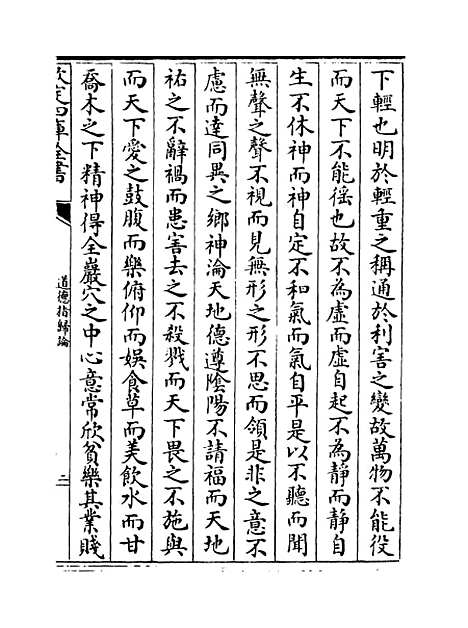 下輕也明於輕重之稱通於利害之變故萬物不能役
而天下不能徭也故不為虛而虛自起不為靜而靜自
生不休神而神自定不和氣而氣自平是以不聽而聞
無聲之聲不視而見無形之形不思而領是非之意不
慮而達同異之鄉神淪天地德遵陰陽不請福而天地
祐之不辭禍而患害去之不殺戮而天下畏之不施與
而天下愛之鼓腹而樂俯仰而娛食草而美飲水而甘
喬木之下精神得全巖穴之中心意常欣貧樂其業賤
欽定四庫全書
道德指歸論
三